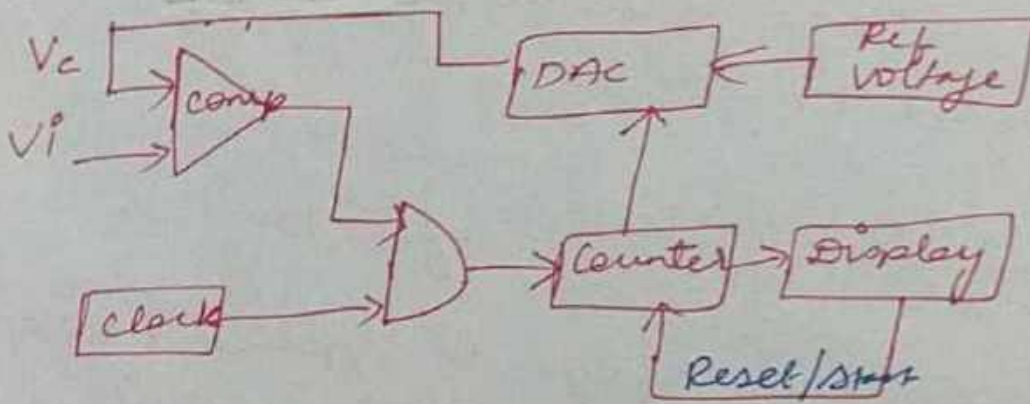 Vc
Vi
comp
DAC
Ref
voltage
Clock
Counter
Display
Reset/start